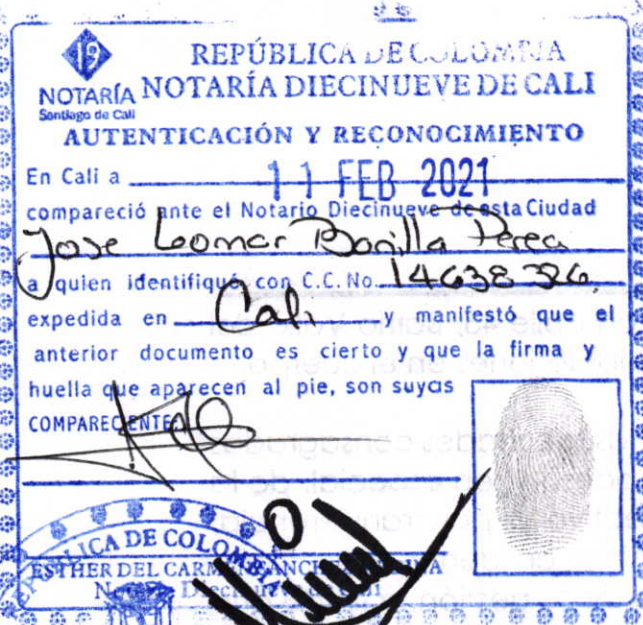 19
NOTARÍA
Santiago de Cali
REPÚBLICA DE COLOMBIA
NOTARÍA DIECINUEVE DE CALI
AUTENTICACIÓN Y RECONOCIMIENTO
En Cali a 11 FEB 2021
compareció ante el Notario Diecinueve de esta Ciudad
Jose Leomar Bonilla Perea
a quien identifiqué con C.C. No. 14638326
expedida en Cali y manifestó que el
anterior documento es cierto y que la firma y
huella que aparecen al pie, son suyas
COMPARECIENTE
REPÚBLICA DE COLOMBIA
ESTHER DEL CARMEN